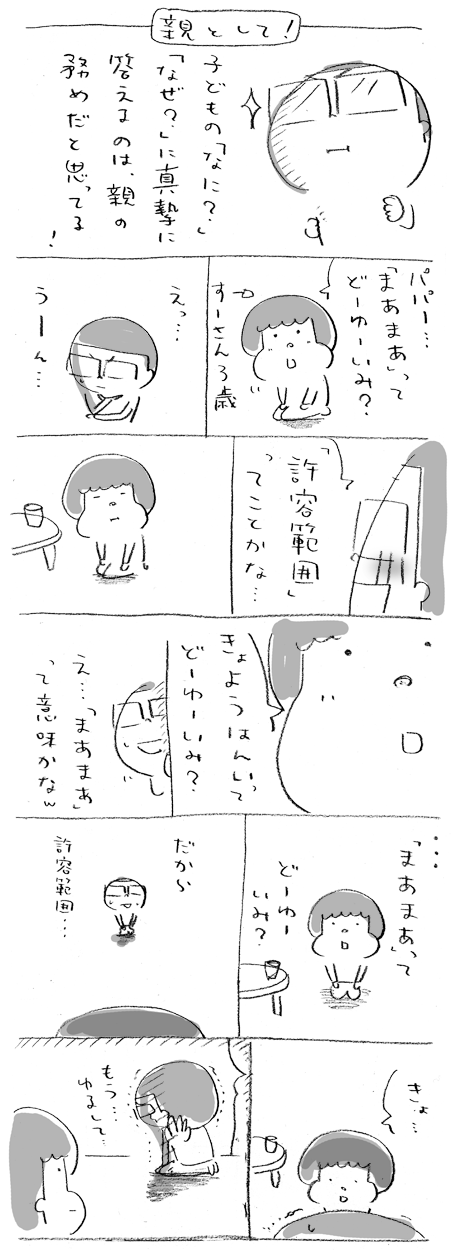 親として!
子どもの「なに?」
「なぜ?」に真摯に
答えるのは、親の
務めだと思ってる
!
パパー…
「まあまあ」って
どーゆーいみ?
すーさん3歳
えっ…
うーん…
「許容範囲」
ってことかな…
きょようはんいって
どーゆーいみ?
え…「まあまあ」
って意味かなw
…
「まあまあ」って
どーゆー
いみ?
だから
許容範囲…
きょ…
もう…
ゆるして…